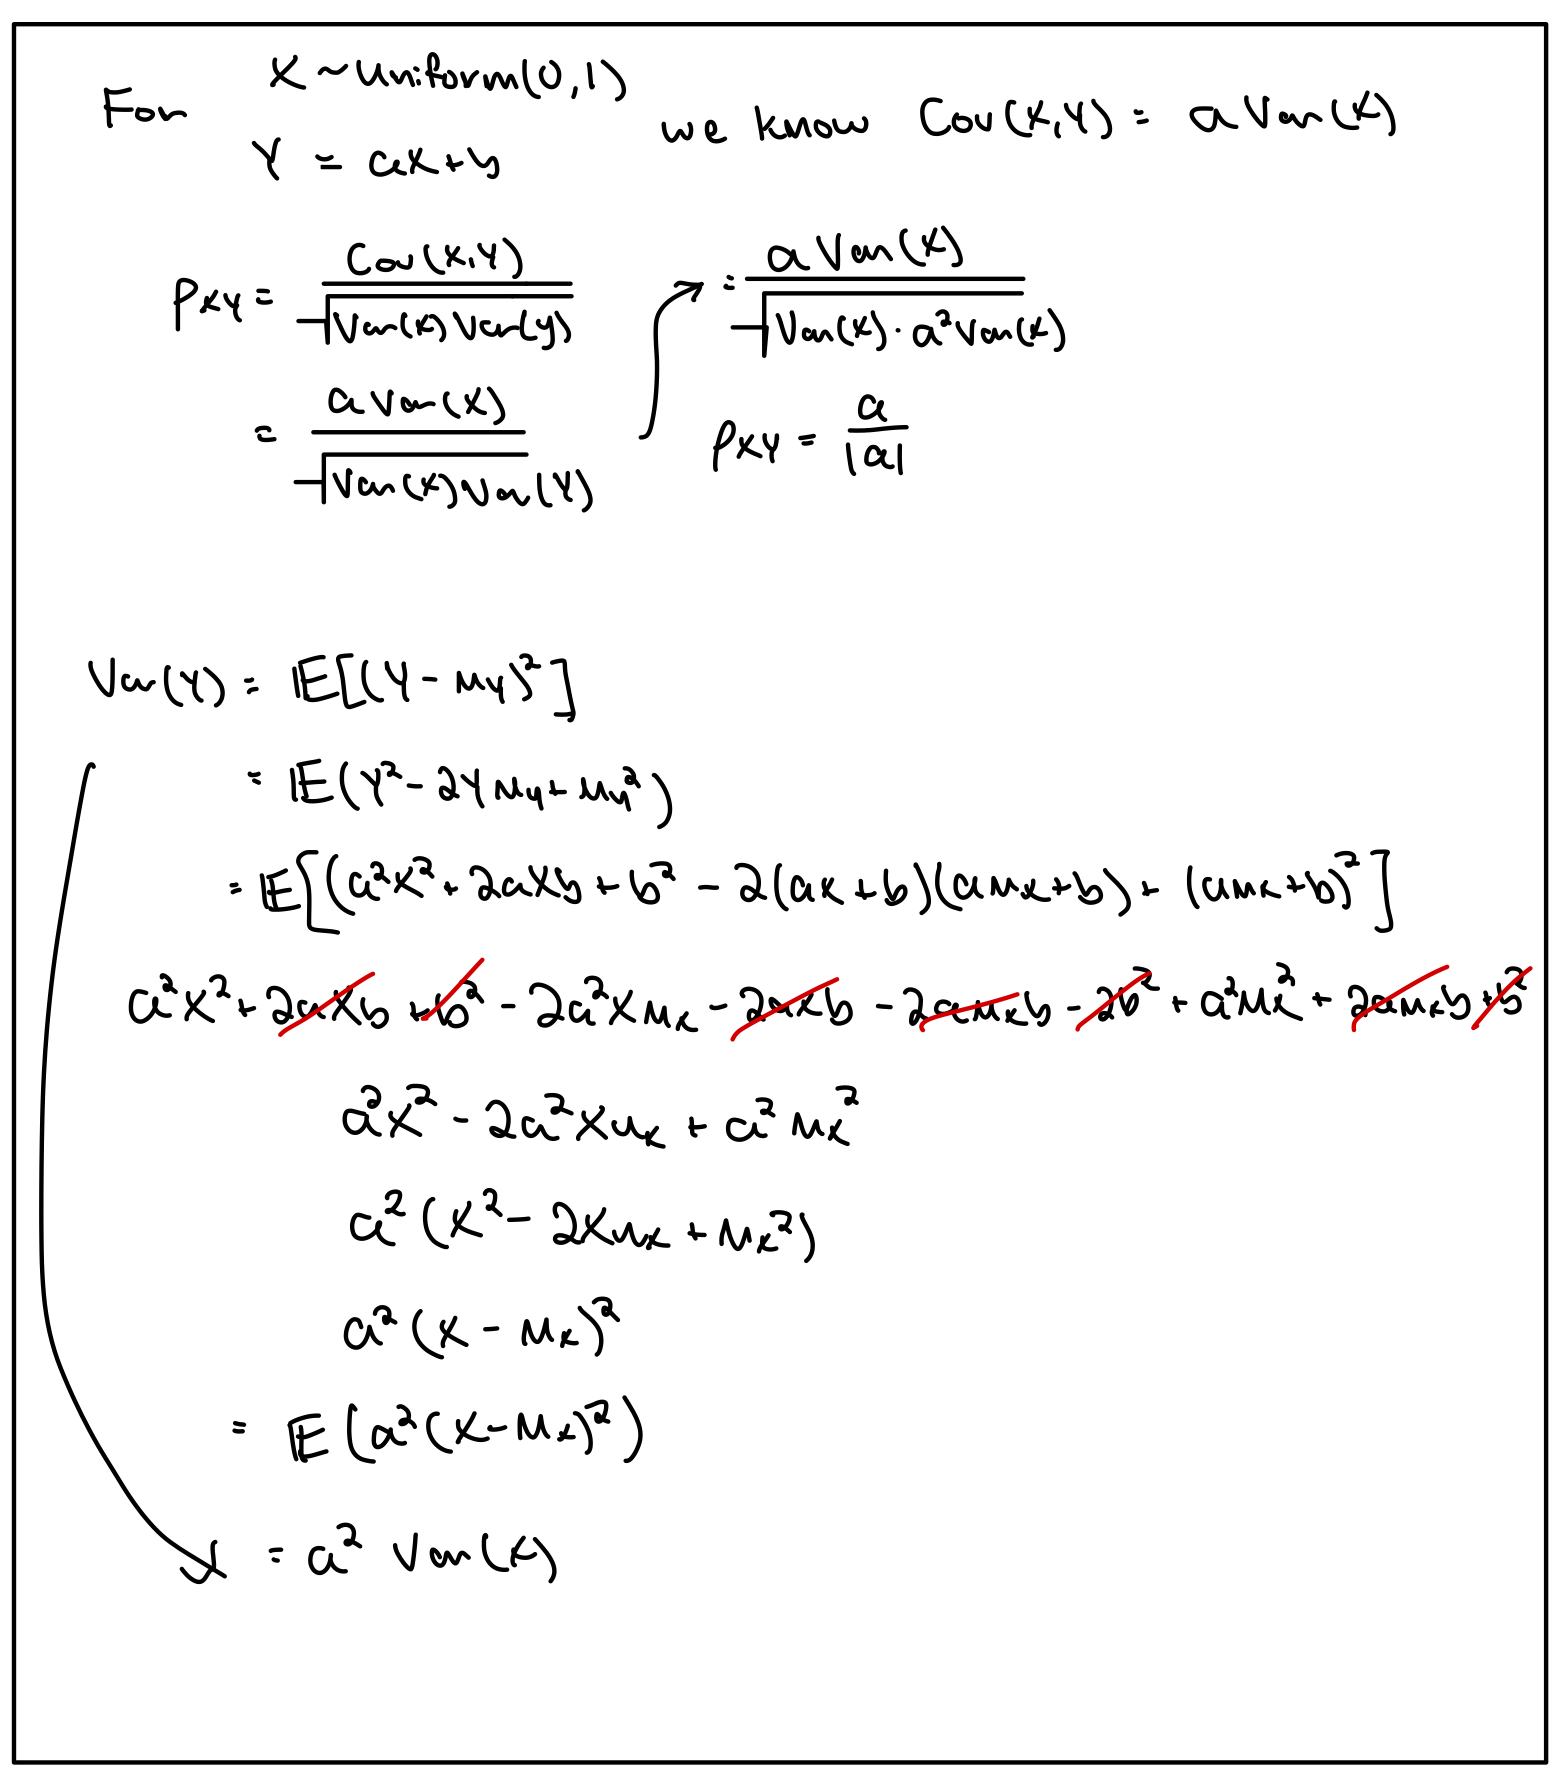 For X ~ Uniform(0,1)
Y = aX+b
we know Cov(X,Y) = a Var(X)
ρXY = Cov(X,Y) / √Var(X)Var(Y)
= a Var(X) / √Var(X)Var(Y)
= a Var(X) / √Var(X)·a²Var(X)
ρXY = a / |a|
Var(Y) = 𝔼[(Y - μY)²]
= 𝔼(Y² - 2YμY + μY²)
= 𝔼[(a²X² + 2aXb + b² - 2(aX+b)(aμX+b) + (aμX+b)²]
a²X² + 2aXb + b² - 2a²XμX - 2aXb - 2aμXb - 2b² + a²μX² + 2aμXb + b²
a²X² - 2a²XμX + a²μX²
a²(X² - 2XμX + μX²)
a²(X - μX)²
= 𝔼(a²(X-μX)²)
= a² Var(X)